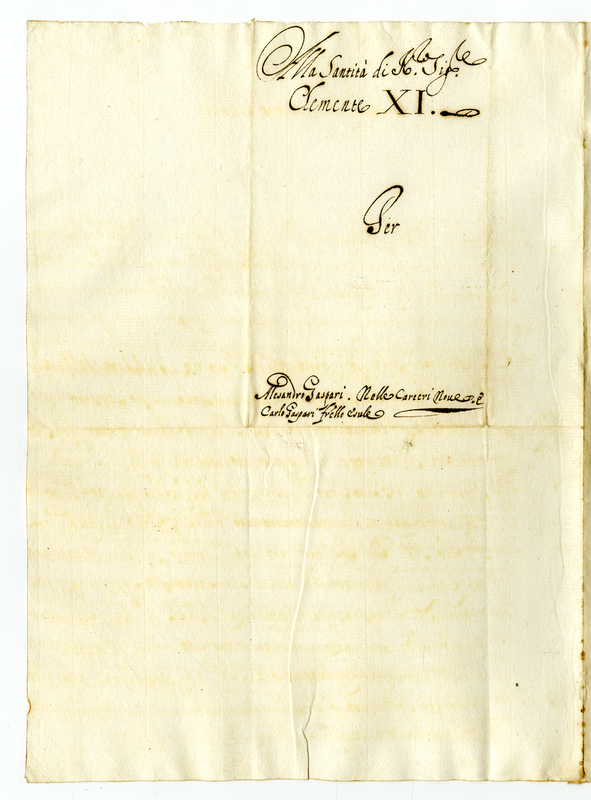 Alla Santità di N.re Sig.re
Clemente XI.
Per
Alesandro Gaspari. Nelle Carceri Nove. e
Carlo Gaspari frello esule